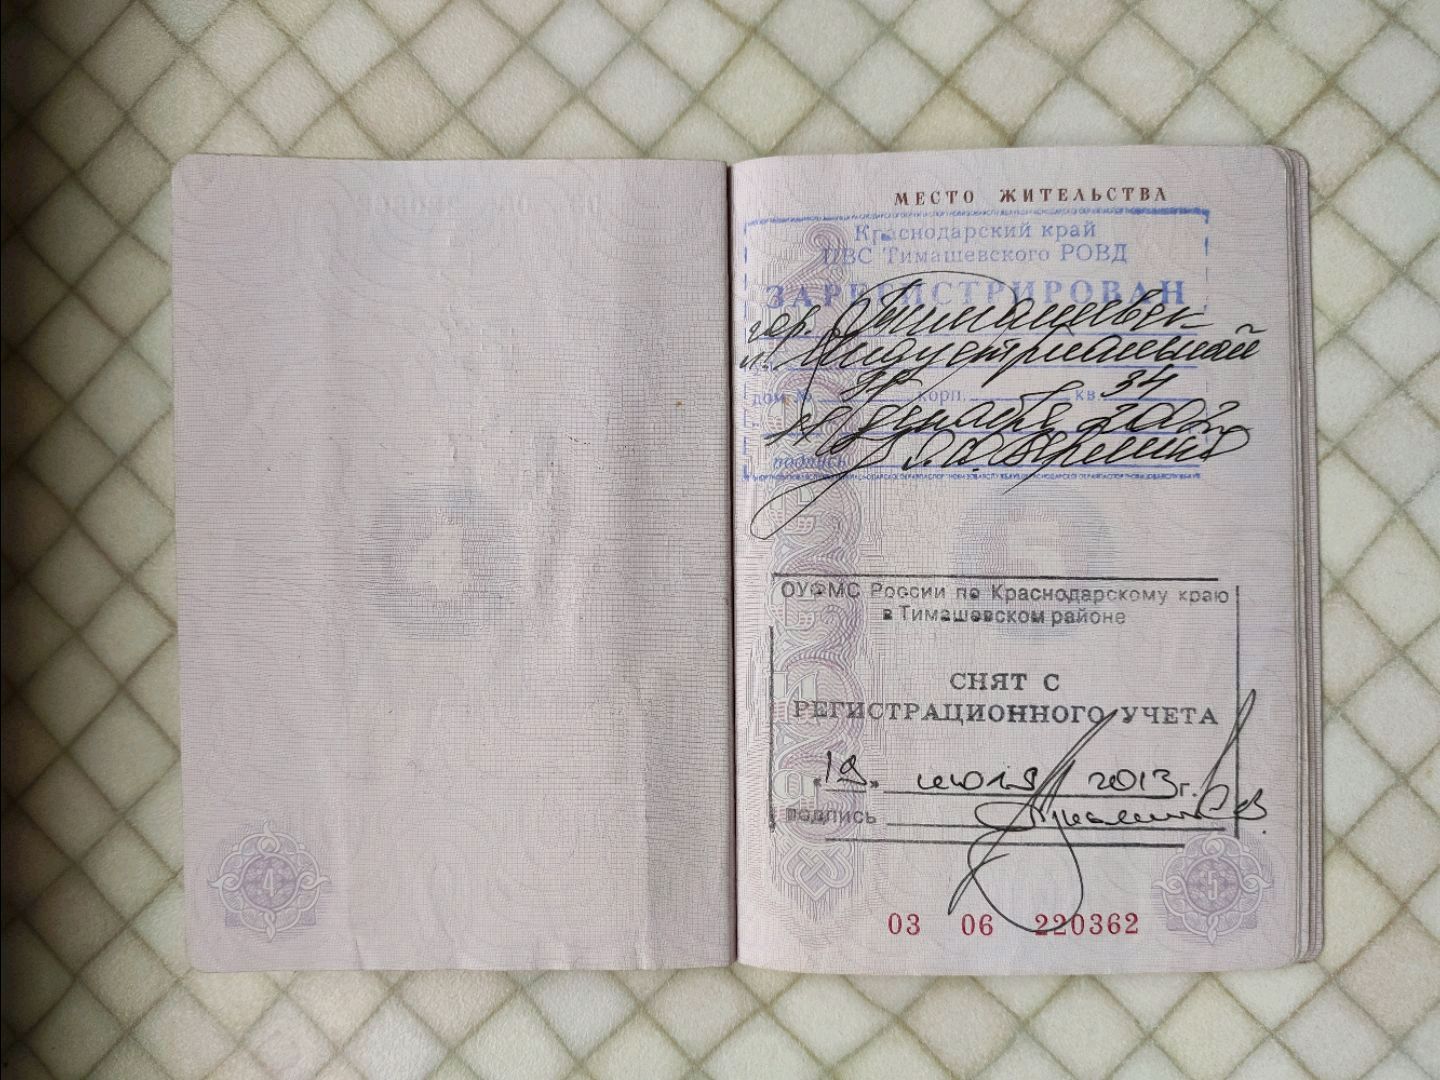 4
МЕСТО ЖИТЕЛЬСТВА
Краснодарский край
ПВС Тимашевского РОВД
ЗАРЕГИСТРИРОВАН
гор. Тимашевск
Индустриальный
дом № корп. кв. 34
декабря 2002
подпись
ОУФМС России по Краснодарскому краю
в Тимашевском районе
СНЯТ С
РЕГИСТРАЦИОННОГО УЧЕТА
"19" июля 2013г.
подпись
5
03 06 220362